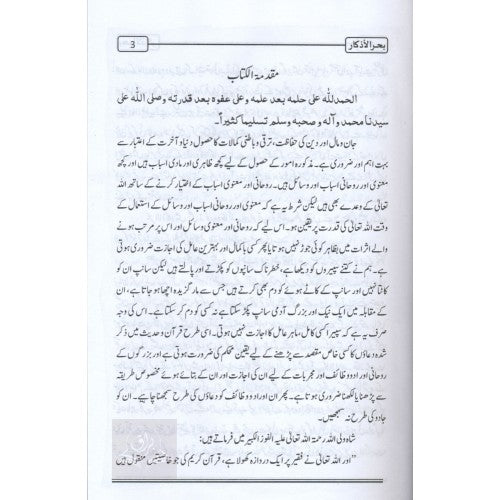 بحر الاذکار
3
مقدمۃ الکتاب
الحمدللّٰہ علی حلمہ بعد علمہ وعلی عفوہ بعد قدرتہ وصلی اللّٰہ علی
سیدنا محمد وآلہ وصحبہ وسلم تسلیما کثیراً۔
جان ومال اور دین کی حفاظت، ترقی وباطنی کمالات کا حصول دنیا و آخرت کے اعتبار سے
بہت اہم اور ضروری ہے۔ مذکورہ امور کے حصول کے لیے کچھ ظاہری اور مادی اسباب ہیں اور کچھ
معنوی اور روحانی اسباب ووسائل ہیں۔ روحانی اور معنوی اسباب کے اختیار کرنے کے ساتھ اللہ
تعالیٰ کے وعدے بھی ہیں لیکن شرط یہ ہے کہ معنوی اور روحانی اسباب اور وسائل کے استعمال کے
وقت اللہ تعالیٰ کی قدرت پر یقین ہو۔ اس لیے کہ روحانی اور معنوی وسائل اور اس پر مرتب ہونے
والے اثرات میں بظاہر کوئی جوڑ نہیں ہوتا یا پھر کسی با کمال اور بہترین عامل کی اجازت ضروری ہوتی
ہے۔ ہم نے کتنے سپیروں کو دیکھا ہے، خطرناک سانپوں کو پکڑتے اور پالتے ہیں لیکن سانپ ان کو
کاٹتا نہیں اور سانپ کے کاٹے ہوئے کو دم بھی کرتے ہیں جس سے مار گزیدہ اچھا ہو جاتا ہے، ان
کے مقابلہ میں ایک نیک اور بزرگ آدمی سانپ پکڑ سکتا ہے نہ کسی کو دم کر سکتا ہے۔ اس کی وجہ
صرف یہ ہے کہ سپیرا کسی کامل، ماہر عامل کا اجازت نہیں ہوتی۔ اسی طرح قرآن و حدیث میں ذکر
شدہ دعاؤں کا کسی خاص مقصد سے پڑھنے کے لیے یقین محکم کی ضرورت ہوتی ہے اور بزرگوں کے
روحانی اور ادو وظائف اور مجربات کے لیے ان کی اجازت اور ان کے بتائے ہوئے مخصوص طریقہ
سے پڑھنا یا لکھنا ضروری ہوتا ہے۔ پھر ان اور ادو وظائف کو دعاؤں کی طرح سمجھنا چاہیے۔ ان کو
جادو کی طرح نہ سمجھیں۔
شاہ ولی اللہ رحمۃ اللہ تعالیٰ علیہ الفوز الکبیر میں فرماتے ہیں:
"اور اللہ تعالیٰ نے فقیر پر ایک دروازہ کھولا ہے، قرآن کریم کی جو خاصیتیں منقول ہیں